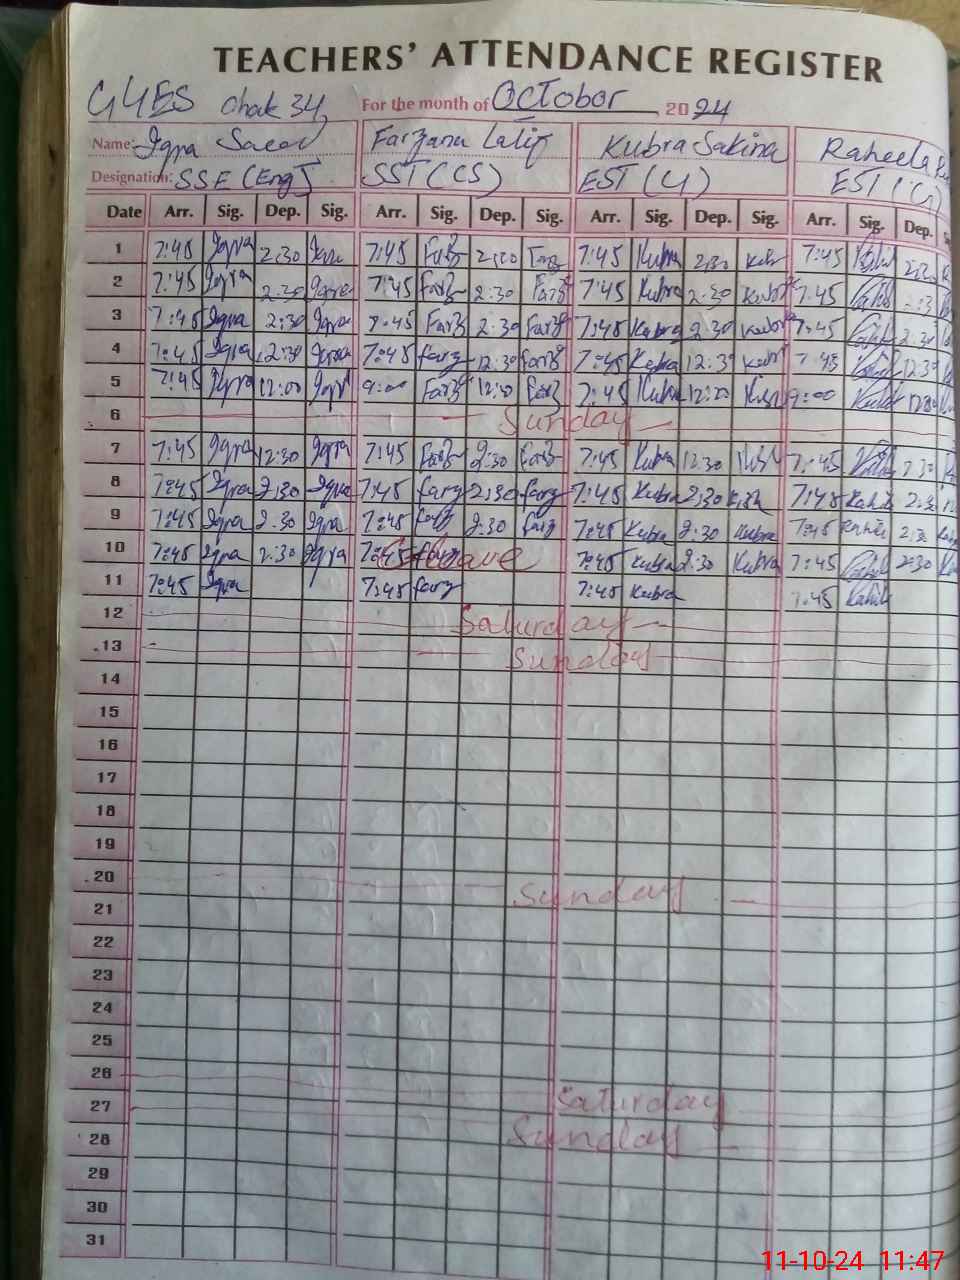 TEACHERS' ATTENDANCE REGISTER
GHES Chak 34 For the month of October 2024
Name: Iqra Saeed Farzana Latif Kubra Sakina Raheela
Designation: SSE (Eng) SST (CS) EST (U) EST (G)
Date Arr. Sig. Dep. Sig. Arr. Sig. Dep. Sig. Arr. Sig. Dep. Sig. Arr. Sig. Dep.
1 7:45 Iqra 2:30 Iqra 7:45 Farz 2:30 Farz 7:45 Kubra 2:30 Kubra 7:45
2 7:45 Iqra 2:30 Iqra 7:45 Farz 2:30 Farz 7:45 Kubra 2:30 Kubra 7:45
3 7:45 Iqra 2:30 Iqra 7:45 Farz 2:30 Farz 7:45 Kubra 2:30 Kubra 7:45 2:30
4 7:45 Iqra 12:30 Iqra 7:45 farz 12:30 farz 7:45 Kubra 12:30 Kubra 7:45 12:30
5 7:45 Iqra 12:00 Iqra 9:00 Farz 12:00 Farz 7:45 Kubra 12:00 9:00 12:00
6 Sunday
7 7:45 Iqra 12:30 Iqra 7:45 Farz 2:30 Farz 7:45 Kubra 12:30 7:45 2:30
8 7:45 Iqra 2:30 Iqra 7:45 farz 2:30 farz 7:45 Kubra 2:30 7:45 2:30
9 7:45 Iqra 2:30 Iqra 7:45 farz 2:30 farz 7:45 Kubra 2:30 Kubra 7:45 2:30
10 7:45 Iqra 2:30 Iqra 7:45 farz Leave 7:45 Kubra 2:30 Kubra 7:45 2:30
11 7:45 Iqra 7:45 farz 7:45 Kubra 7:45
12 Saturday
13 Sunday
14
15
16
17
18
19
20 Sunday
21
22
23
24
25
26
27 Saturday
28 Sunday
29
30
31
11-10-24 11:47